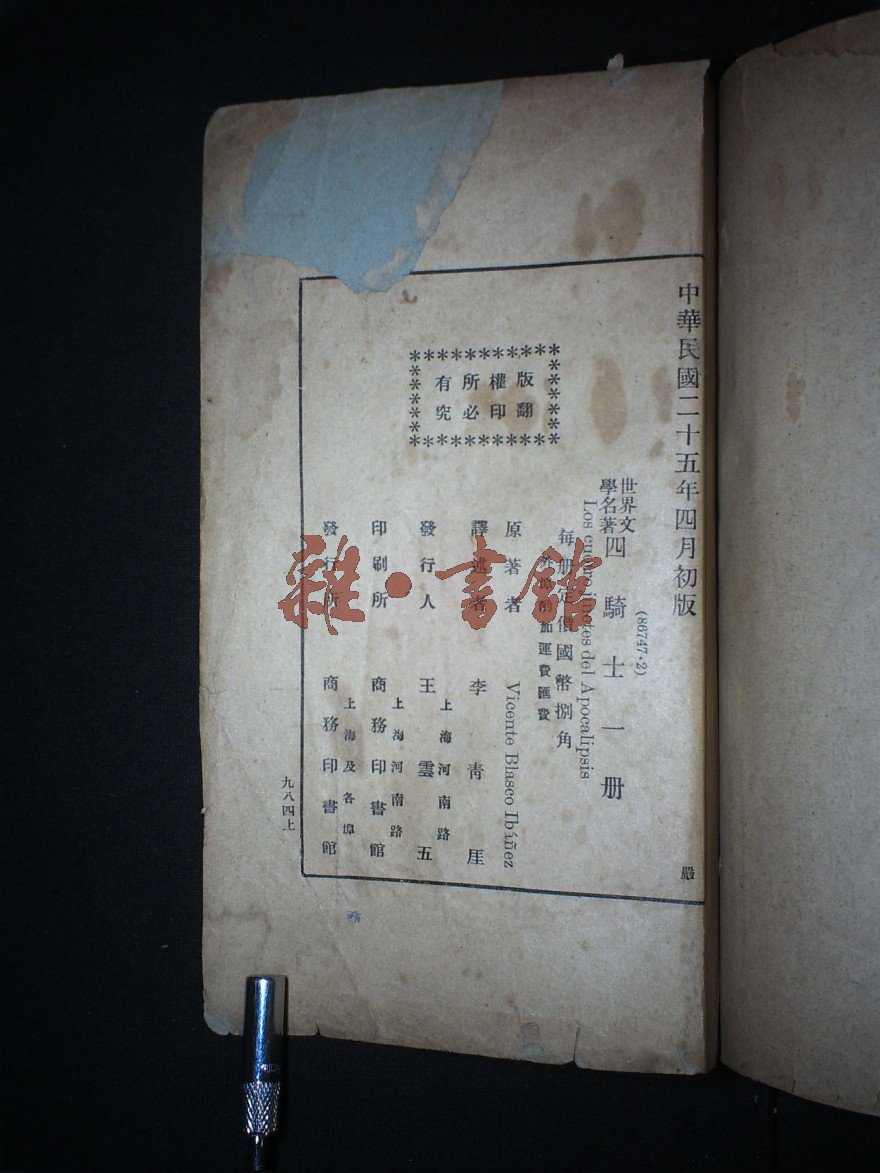 中華民國二十五年四月初版
嚴
(86747·2)
世界文
學名著
四騎士一册
Los cuatro jinetes del Apocalipsis
每册定價國幣捌角
外埠酌加運費匯費
版權所有
翻印必究
原著者 Vicente Blasco Ibáñez
譯述者 李青厓
上海河南路
發行人 王雲五
上海河南路
印刷所 商務印書館
上海及各埠
發行所 商務印書館
九八四上
雜·書館